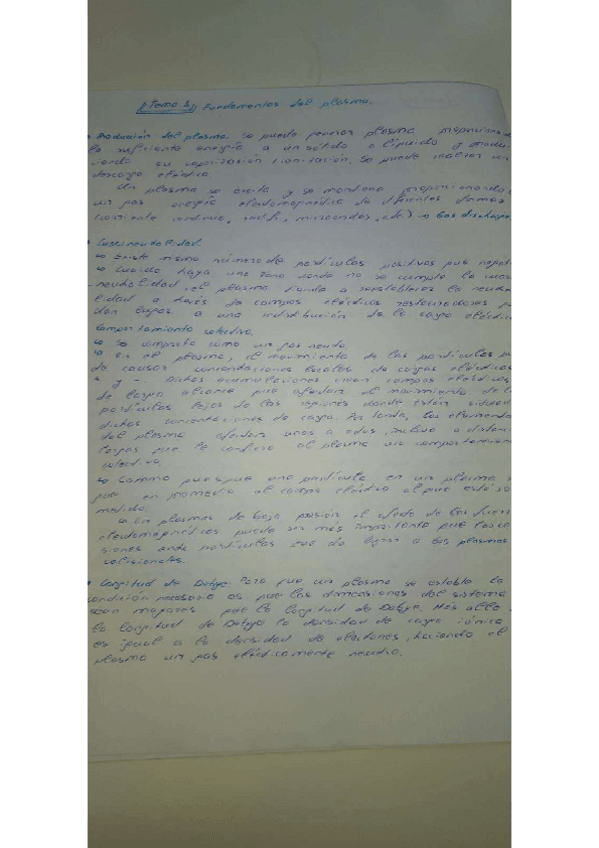 Tema 1, Fundamentos del plasma.
Producción del plasma. Se puede generar plasma proporcionando
la suficiente energía a un sólido o líquido y produ-
ciendo su vaporización e ionización. Se puede realizar un
descarga eléctrica.
Un plasma se excita y se mantiene proporcionando
un gas energía electromagnética de diferentes formas
(corriente continua, microondas, etc) → Gas discharge
Cuasineutralidad.
↳ Existe mismo número de partículas positivas que negat
↳ Cuando haya una zona donde no se cumple la cuasi
-neutralidad, el plasma tiende a restablecer la neutra
lidad a través de campos eléctricos restauradores
dan lugar a una redistribución de la carga eléctric
Comportamiento colectivo.
↳ Se comporta como un gas neutro
↳ En el plasma, el movimiento de las partículas
de causar concentraciones locales de cargas eléctricas
+ y -. Dichas acumulaciones crean campos eléctricos
de largo alcance que afectan el movimiento de l
partículas lejos de las regiones donde están situad
dichas concentraciones de carga. Por tanto, los elementos
del plasma afectan unos a otros, incluso a distan
largas que le confiere al plasma un comportamien
colectivo.
↳ Gamma una partícula en un plasma
en promedio al campo eléctrico al que está so
metido.
↳ En plasmas de baja presión el efecto de las fuerz
electromagnéticas puede ser más importante que
siones entre partículas eso da lugar a los plasmas
colisionales.
Longitud de Debye. Para que un plasma sea estable la
condición necesaria es que las dimensiones del sistema
sean mayores que la longitud de Debye. Más allá
la longitud de Debye la densidad de carga iónica
es igual a la densidad de electrones, haciendo el
plasma un gas eléctricamente neutro.